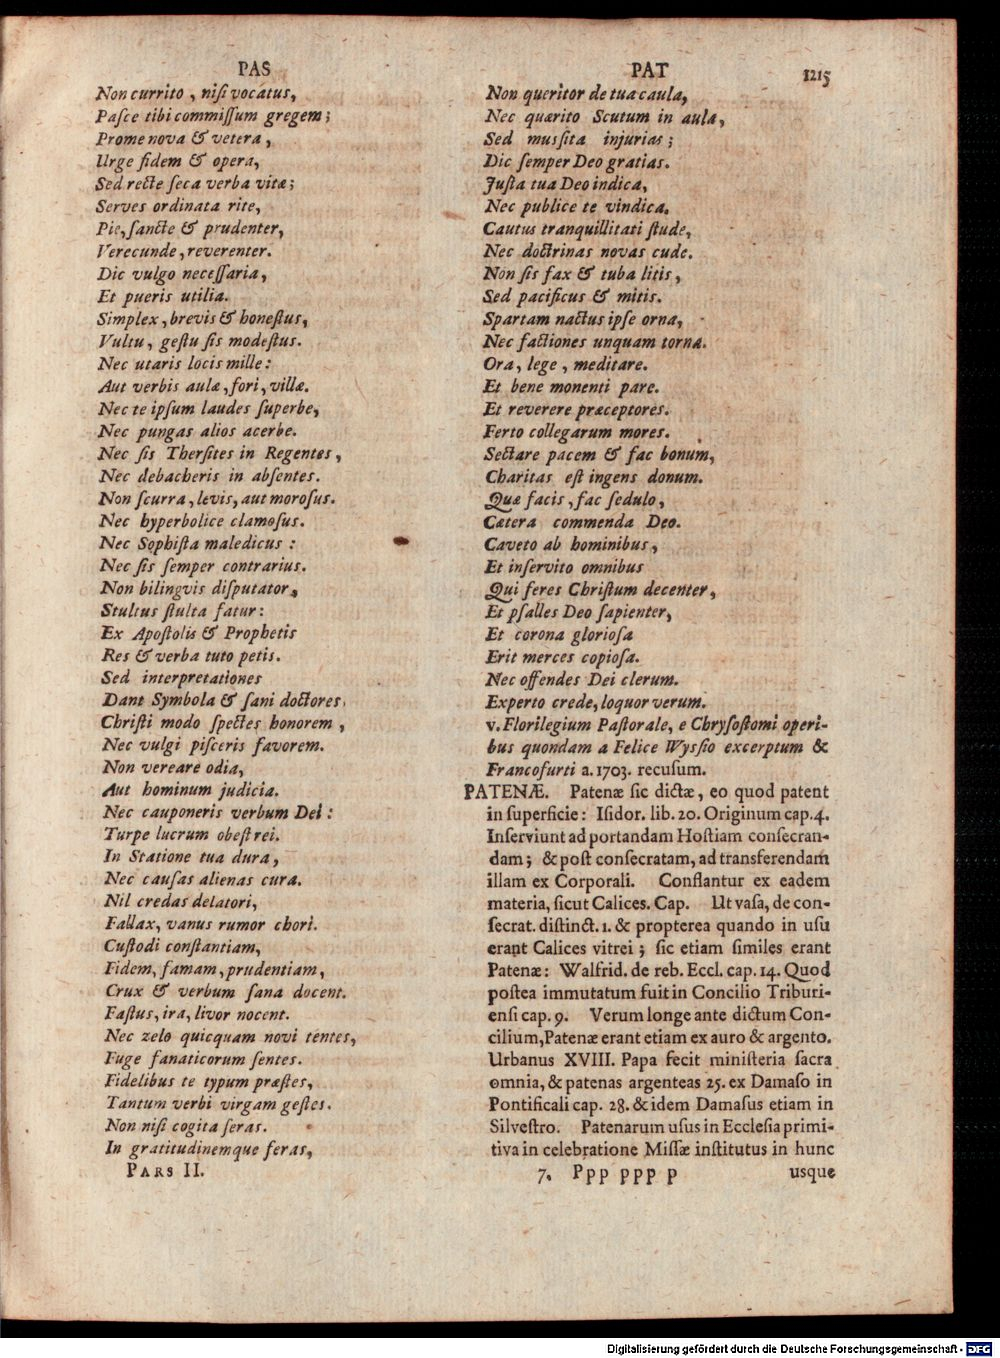 PAS
Non currito, niſi vocatus,
Paſce tibi commiſſum gregem;
Prome nova & vetera,
Urge fidem & opera,
Sed recte ſeca verba vitæ;
Serves ordinata rite,
Pie, ſancte & prudenter,
Verecunde, reverenter.
Dic vulgo neceſſaria,
Et pueris utilia.
Simplex, brevis & honeſtus,
Vultu, geſtu ſis modeſtus.
Nec utaris locis mille:
Aut verbis aulæ, fori, villæ.
Nec te ipſum laudes ſuperbe,
Nec pungas alios acerbe.
Nec ſis Therſites in Regentes,
Nec debacheris in abſentes.
Non ſcurra, levis, aut moroſus.
Nec hyperbolice clamoſus.
Nec Sophiſta maledicus:
Nec ſis ſemper contrarius.
Non bilingvis diſputator,
Stultus ſtulta fatur:
Ex Apoſtolis & Prophetis
Res & verba tuto petis.
Sed interpretationes
Dant Symbola & ſani doctores.
Chriſti modo ſpectes honorem,
Nec vulgi piſceris favorem.
Non vereare odia,
Aut hominum judicia.
Nec cauponeris verbum Dei:
Turpe lucrum obeſt rei.
In Statione tua dura,
Nec cauſas alienas cura.
Nil credas delatori,
Fallax, vanus rumor chori.
Cuſtodi conſtantiam,
Fidem, famam, prudentiam,
Crux & verbum ſana docent.
Faſtus, ira, livor nocent.
Nec zelo quicquam novi tentes,
Fuge fanaticorum ſentes.
Fidelibus te typum præſtes,
Tantum verbi virgam geſtes.
Non niſi cogita ſeras.
In gratitudinemque feras,
PARS II.
PAT
1215
Non queritor de tua caula,
Nec quærito Scutum in aula,
Sed musſita injurias;
Dic ſemper Deo gratias.
Juſta tua Deo indica,
Nec publice te vindica.
Cautus tranquillitati ſtude,
Nec doctrinas novas cude.
Non ſis fax & tuba litis,
Sed pacificus & mitis.
Spartam nactus ipſe orna,
Nec factiones unquam torna.
Ora, lege, meditare.
Et bene monenti pare.
Et reverere præceptores.
Ferto collegarum mores.
Sectare pacem & fac bonum,
Charitas eſt ingens donum.
Quæ facis, fac ſedulo,
Cætera commenda Deo.
Caveto ab hominibus,
Et inſervito omnibus
Qui feres Chriſtum decenter,
Et pſalles Deo ſapienter,
Et corona glorioſa
Erit merces copioſa.
Nec offendes Dei clerum.
Experto crede, loquor verum.
v. Florilegium Paſtorale, e Chryſoſtomi operi-
bus quondam a Felice Wyſſio excerptum &
Francofurti a. 1703. recuſum.
PATENÆ. Patenæ ſic dictæ, eo quod patent
in ſuperficie: Iſidor. lib. 20. Originum cap. 4.
Inſerviunt ad portandam Hoſtiam conſecran-
dam; & poſt conſecratam, ad transferendam
illam ex Corporali. Conflantur ex eadem
materia, ſicut Calices. Cap. Ut vaſa, de con-
ſecrat. diſtinct. 1. & propterea quando in uſu
erant Calices vitrei; ſic etiam ſimiles erant
Patenæ: Walfrid. de reb. Eccl. cap. 14. Quod
poſtea immutatum fuit in Concilio Triburi-
enſi cap. 9. Verum longe ante dictum Con-
cilium, Patenæ erant etiam ex auro & argento.
Urbanus XVIII. Papa fecit miniſteria ſacra
omnia, & patenas argenteas 25. ex Damaſo in
Pontificali cap. 28. & idem Damaſus etiam in
Silveſtro. Patenarum uſus in Eccleſia primi-
tiva in celebratione Miſſæ inſtitutus in hunc
7. Ppp ppp p
usque
Digitalisierung gefördert durch die Deutsche Forschungsgemeinschaft - DFG